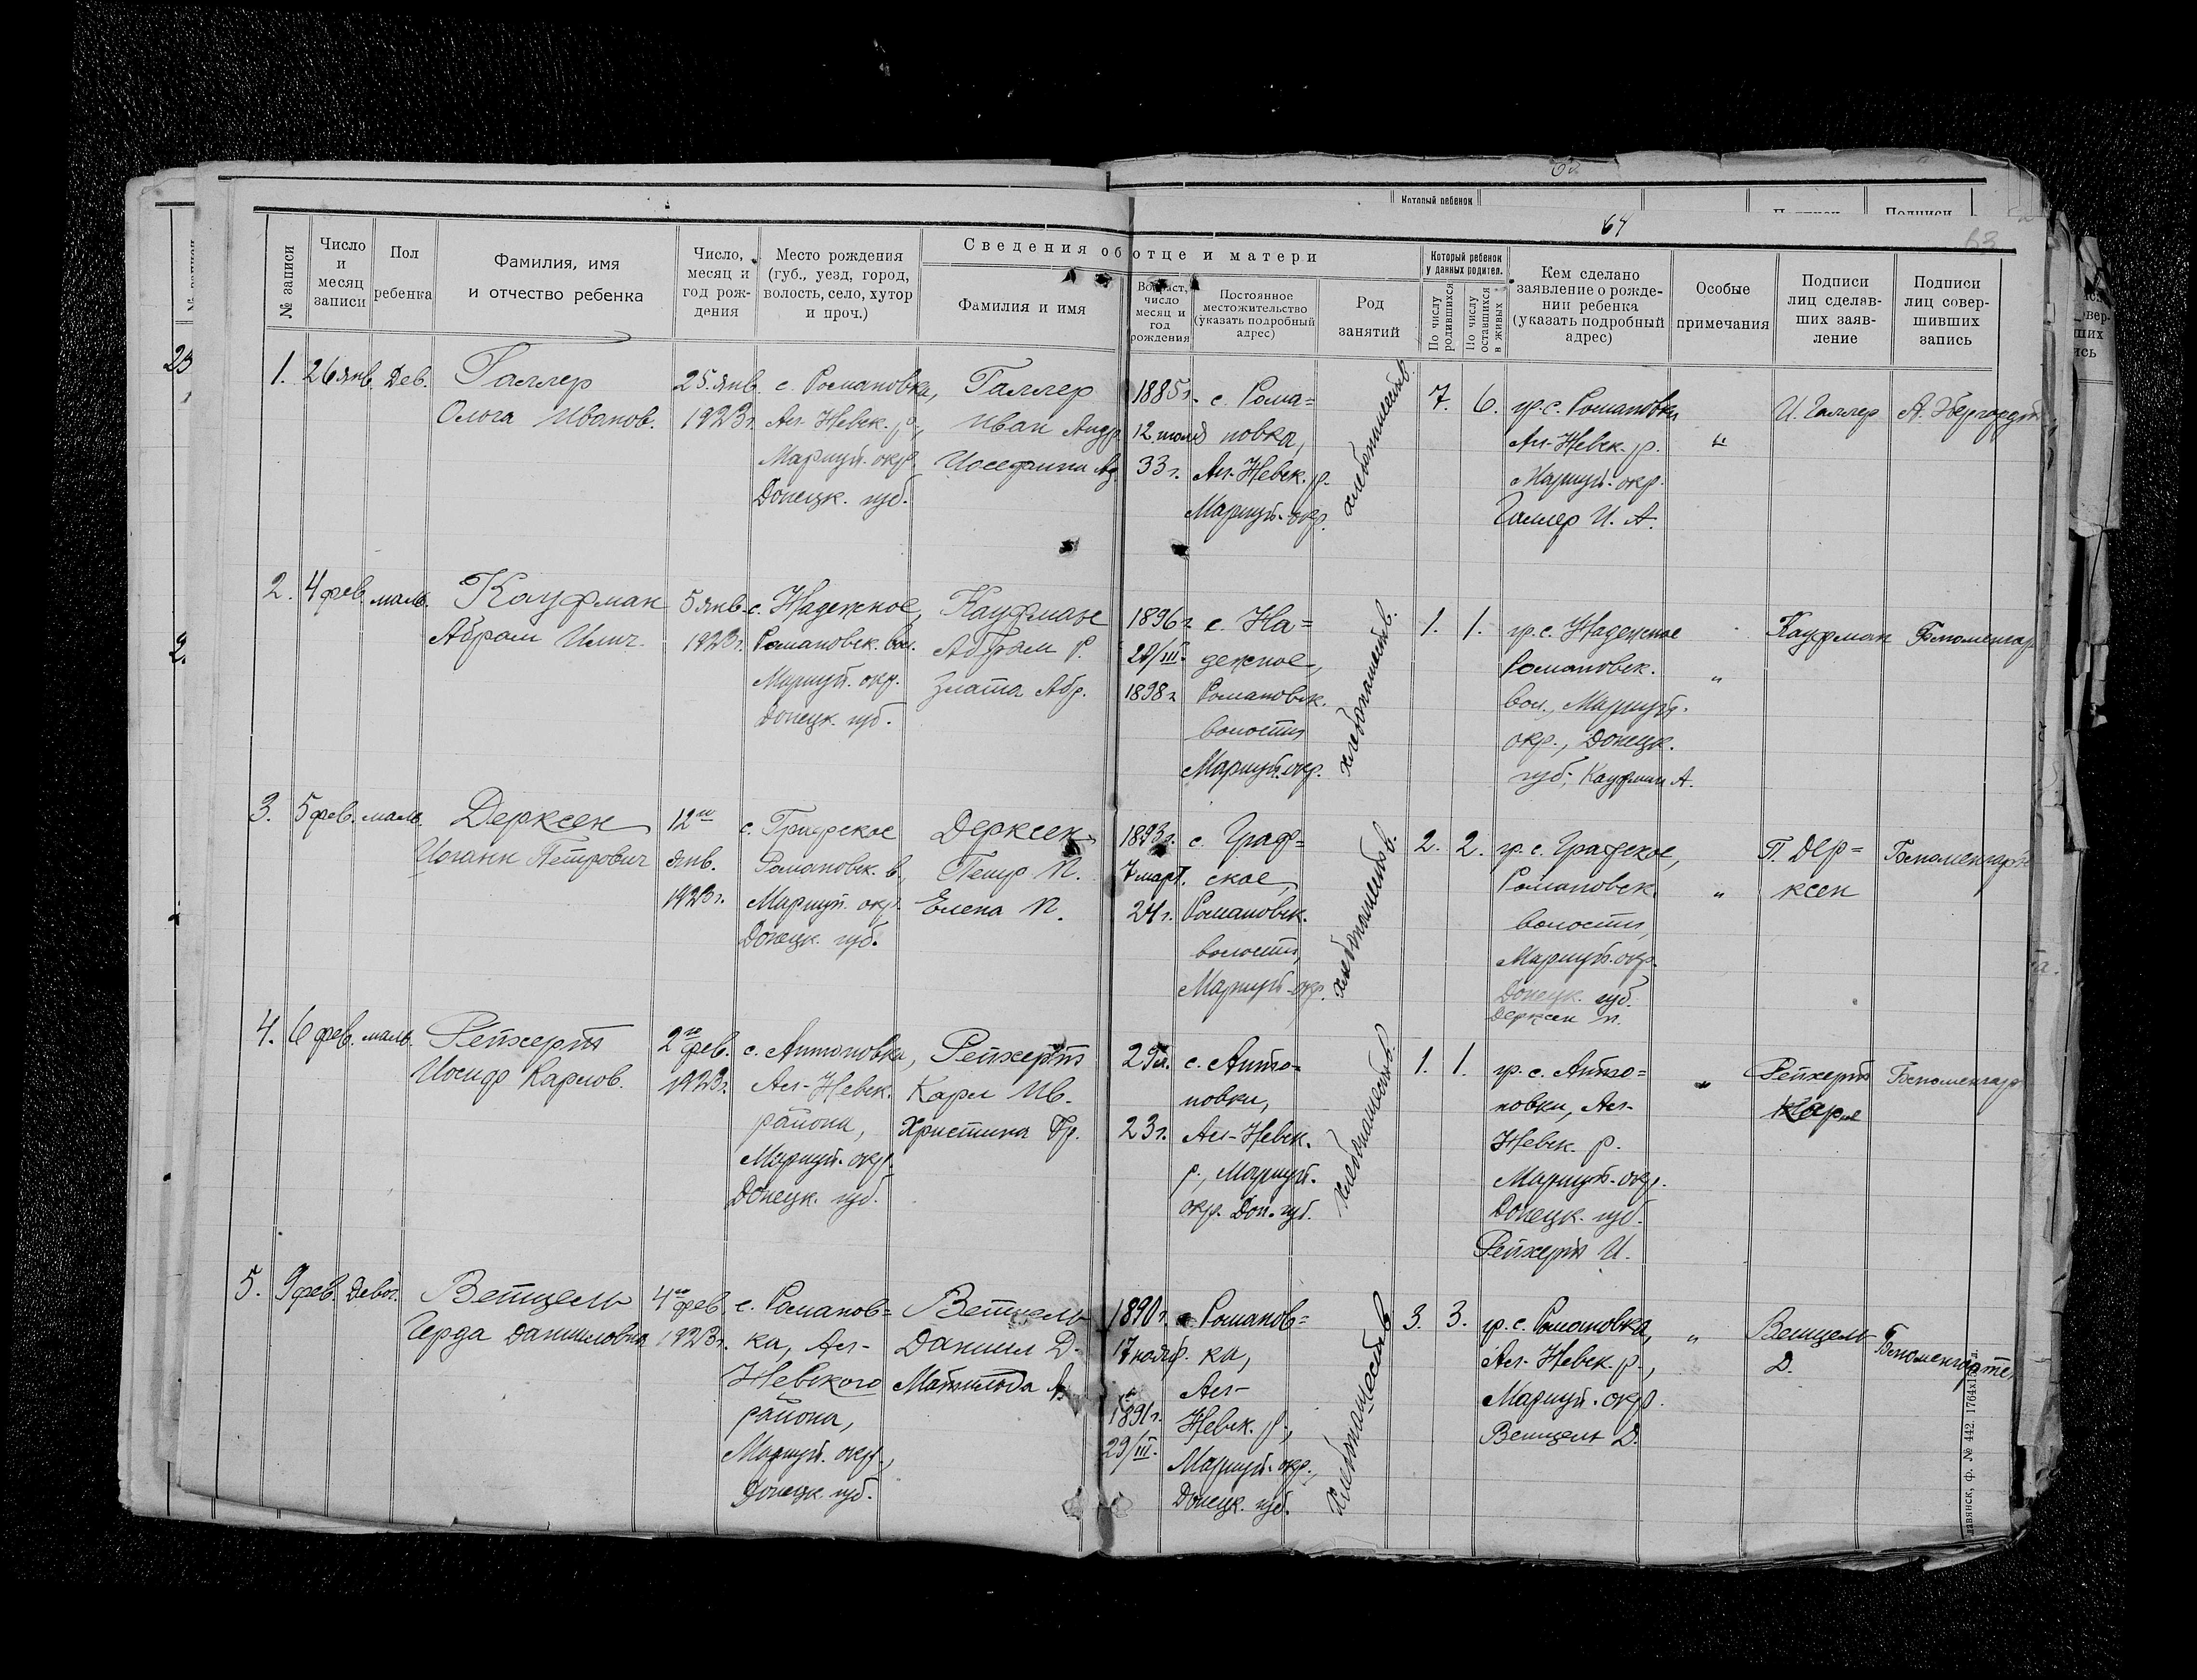 64
63
Сведения об отце и матери
№ записи
Число и месяц записи
Пол ребенка
Фамилия, имя и отчество ребенка
Число, месяц и год рождения
Место рождения (губ., уезд, город, волость, село, хутор и проч.)
Фамилия и имя
Возраст, число месяц и год рождения
Постоянное местожительство (указать подробный адрес)
Род занятий
Который ребенок у данных родител.
По числу родившихся
По числу оставшихся в живых
Кем сделано заявление о рождении ребенка (указать подробный адрес)
Особые примечания
Подписи лиц сделавших заявление
Подписи лиц совершивших запись
1. 26 янв. Дев. Галлер 25 янв. с. Романовка, Галлер 1885 г. с. Рома= 7. 6. гр. с. Романовки И. Галлер
Ольга Иванов. 1923 г. Ал. Невск. р., Иван Андр. 12 новка, Ал-Невск. р. "
Мариуп. окр. 33 г. Ал-Невск. р. Мариуп. окр.
Донецк. губ. Мариуп. окр. Галлер И. А.
хлебопашеств.
2. 4 фев. маль. Кауфман 5 янв. с. Надежное, Кауфман 1896 г. с. На= 1. 1. гр. с. Надежное Кауфман
Абрам 1923 г. Романовск. вол. Абрам Р. 29/III. дежное, Романовск. "
Мариуп. окр. Злата Абр. 1898 г. Романовск. вол., Мариуп.
Донецк. губ. волости окр., Донецк.
Мариуп. окр. губ., Кауфман А.
хлебопашеств.
3. 5 фев. маль. Дерксен 12го с. Графское Дерксен 1893 г. с. Граф= 2. 2. гр. с. Графское, П. Дер=
Иоганн Петрович янв. Романовск. в., Петр П. 7 март. ское, Романовск. " ксен
1923 г. Мариуп. окр. Елена П. 24 г. Романовск. волости,
Донецк. губ. волости, Мариуп. окр.
Мариуп. окр. Донецк. губ.
Дерксен П.
хлебопашеств.
4. 6 фев. маль. Рейхерт 2го фев. с. Антоновка, Рейхерт 29 л. с. Анто= 1. 1. гр. с. Анто= " Рейхерт
Иосиф Карлов. 1923 г. Ал-Невск. Карл Ив. новки, новки, Ал- Карл
района, Христина 23 г. Ал-Невск. Невск. р.
Мариуп. окр. р., Мариуп. Мариуп. окр.
Донецк. губ. окр. Дон. губ. Донецк. губ.
Рейхерт И.
Хлебопашеств.
5. 9 фев. Девоч. Ветцель 4го фев. с. Романов= Ветцель 1890 г. с. Романов= 3. 3. гр. с. Романовка, " Ветцель
Герда Даниловна 1923 г. ка, Ал- Данил Д. 17 нояб. ка, Ал-Невск. р., Д.
Невского Матильда Ал- Мариуп. окр.
района, 1891 г. Невск. р., Ветцель Д.
Мариуп. окр., 29/III. Мариуп. окр.,
Донецк. губ. Донецк. губ.
Хлебопашеств